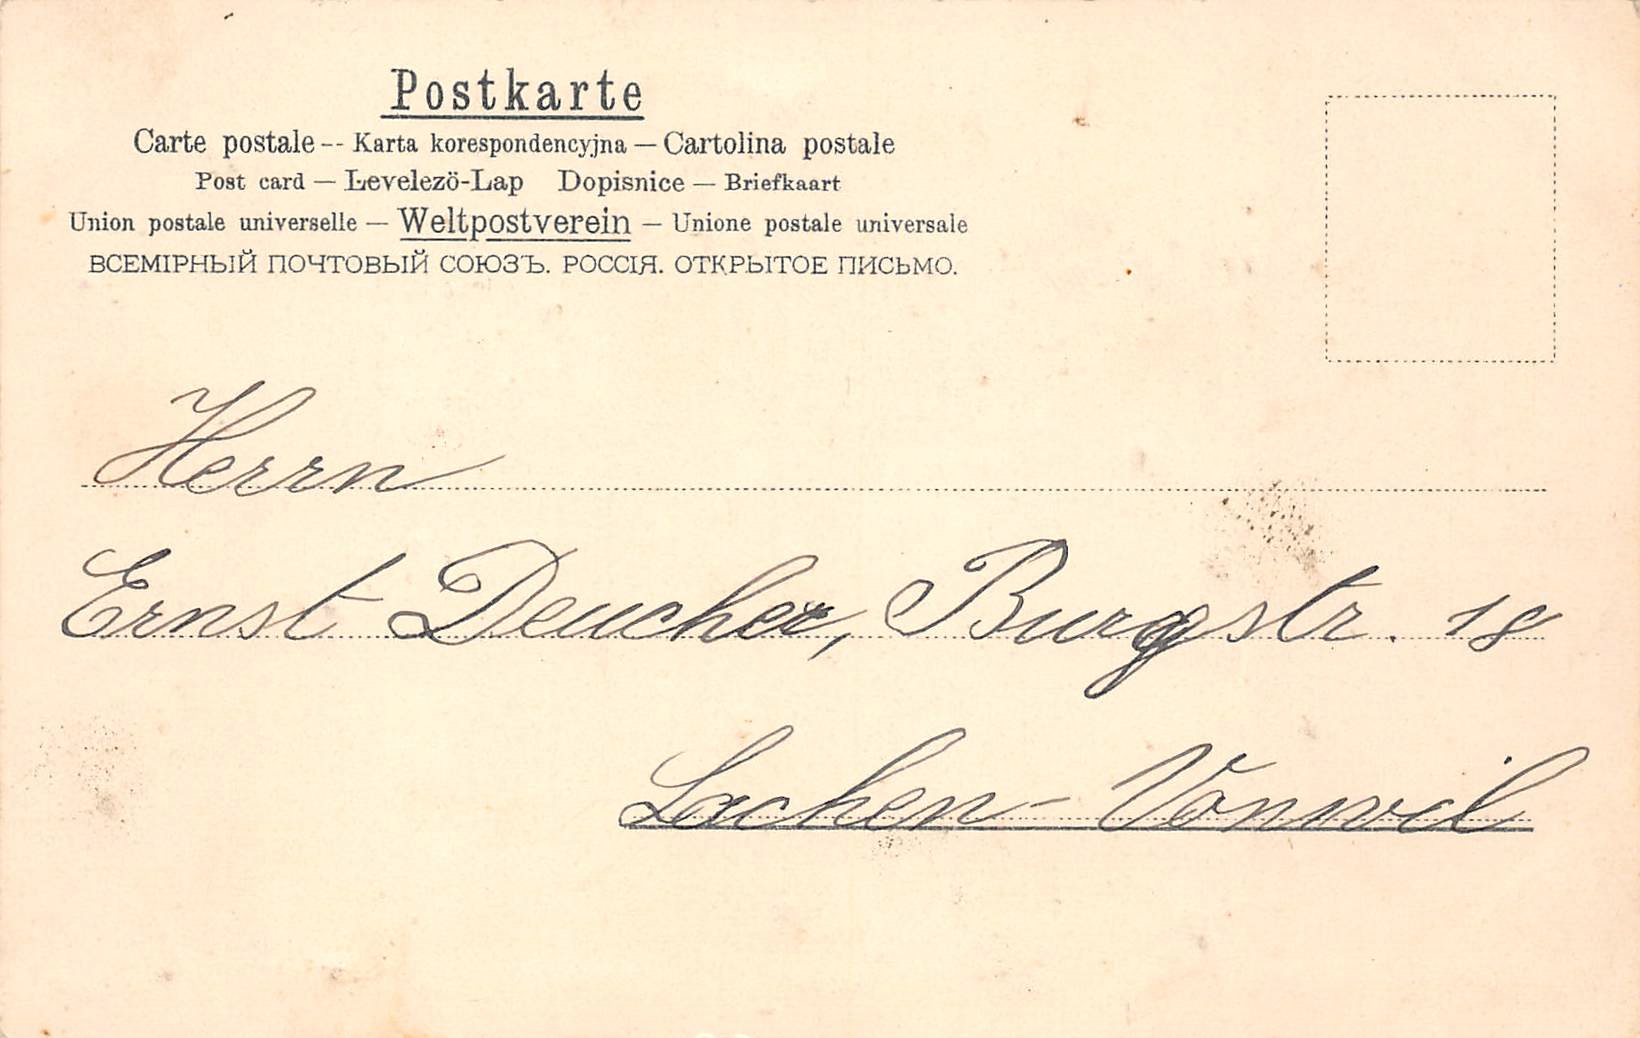 Postkarte
Carte postale -- Karta korespondencyjna — Cartolina postale
Post card — Levelezö-Lap Dopisnice — Briefkaart
Union postale universelle — Weltpostverein — Unione postale universale
ВСЕМІРНЫЙ ПОЧТОВЫЙ СОЮЗЪ. РОССІЯ. ОТКРЫТОЕ ПИСЬМО.
Herrn
Ernst Deucher, Burgstr. 18
Lachen-Vonwil